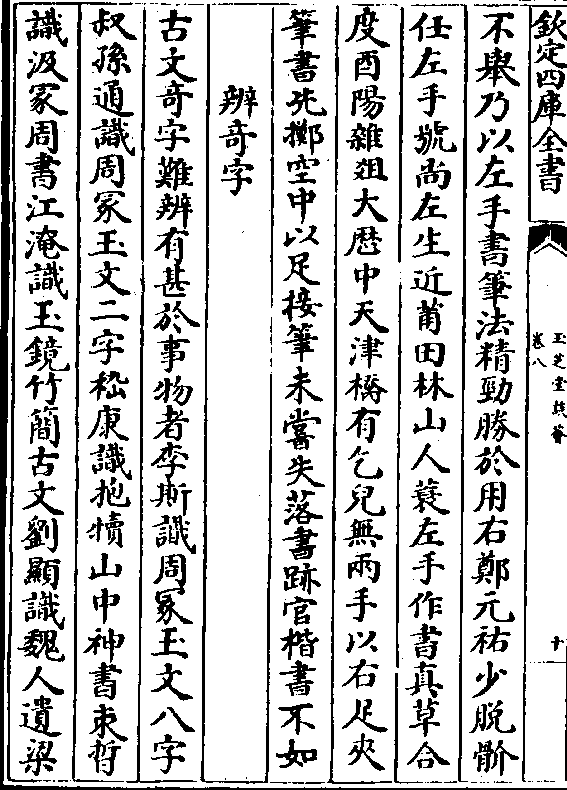 欽定四庫全書
玉芝堂談薈
卷八
十
不舉乃以左手書筆法精勁勝於用右鄭元祐少脫骱
任左手號尚左生近莆田林山人蓑左手作書真草合
度酉陽雜俎大厯中天津橋有乞兒無兩手以右足夾
筆書先擲空中以足接筆未嘗失落書跡官楷書不如
辨奇字
古文奇字難辨有甚於事物者李斯識周冢玉文八字
叔孫通識周冢玉文二字嵇康識抱犢山中神書束晳
識汲冢周書江淹識玉鏡竹簡古文劉顯識魏人遺梁